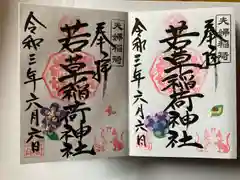 夫婦稲荷
奉拝
若草稲荷神社
令和三年六月六日
夫婦稲荷
奉拝
若草稲荷神社
令和三年六月六日